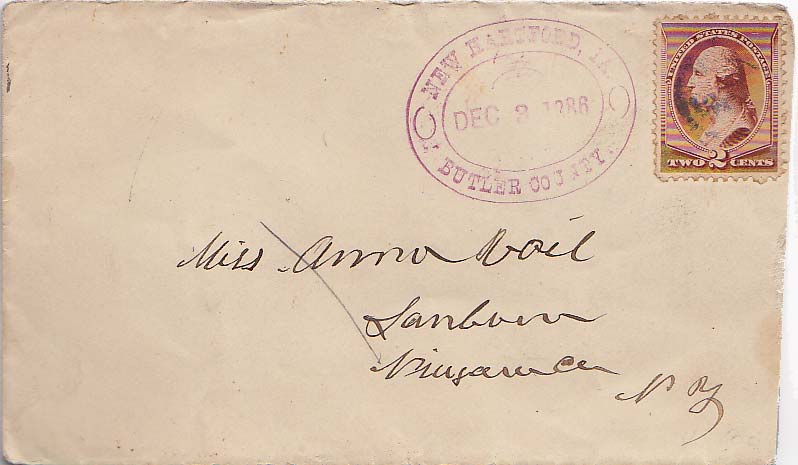 NEW HARTFORD, IA.
DEC 3 1886
BUTLER COUNTY.
UNITED STATES POSTAGE
TWO 2 CENTS
Miss Anna
Sanborn
Niagara Co
N Y